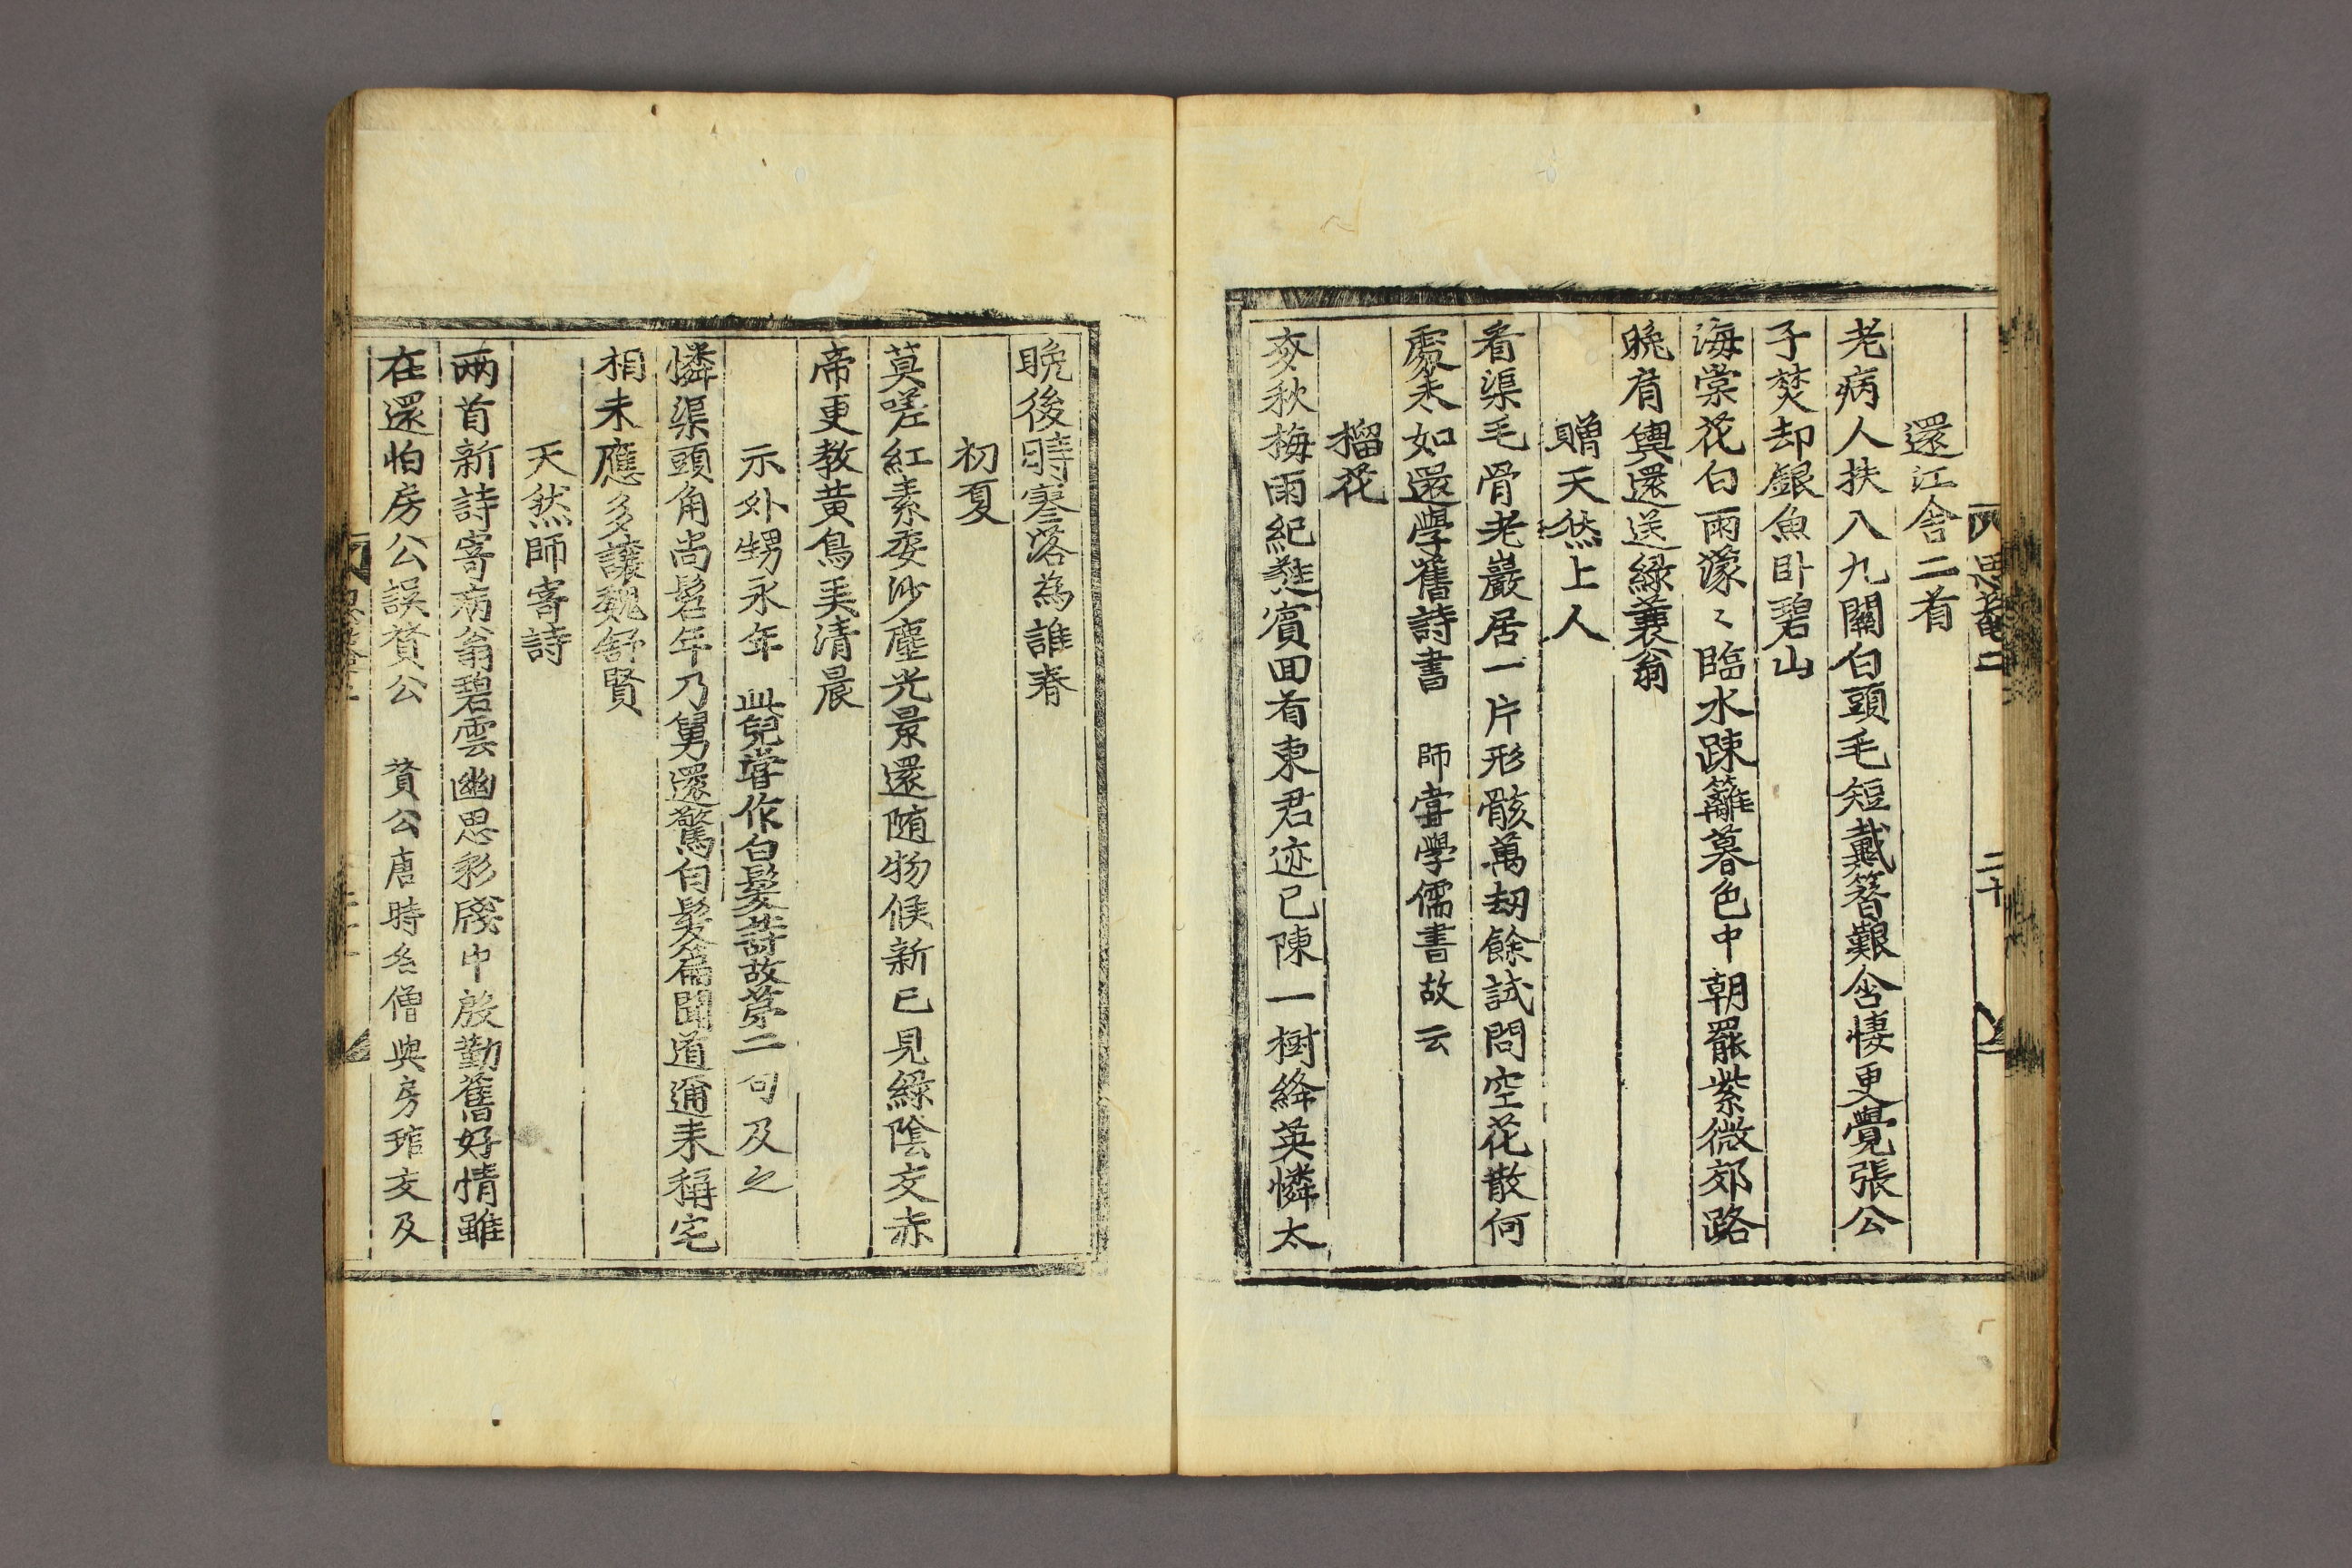 思菴二 二十
還江舍二首
老病人扶八九關白頭毛短戴簪艱含悽更覺張公
子焚却銀魚卧碧山
海棠花白雨濛〻臨水踈籬暮色中朝罷紫微郊路
晚肩輿還送綠蓑翁
贈天然上人
看渠毛骨老巖居一片形骸萬劫餘試問空花散何
處來如還學舊詩書 師嘗學儒書故云
榴花
麥秋梅雨紀蕤賓回首東君迹已陳一樹絳英憐太
晚後時寥落為誰春
初夏
莫嗟紅素委沙塵光景還随物候新已見綠陰交赤
帝更教黃鳥美清晨
示外甥永年 此兒嘗作白髮詩故第二句及之
憐渠頭角尚髫年乃舅還驚白髮篇聞道邇來稱宅
相未應多讓魏舒賢
天然師寄詩
兩首新詩寄病翁碧雲幽思彩牋中殷勤舊好情雖
在還怕房公誤贊公 贊公唐時名僧與房琯交及